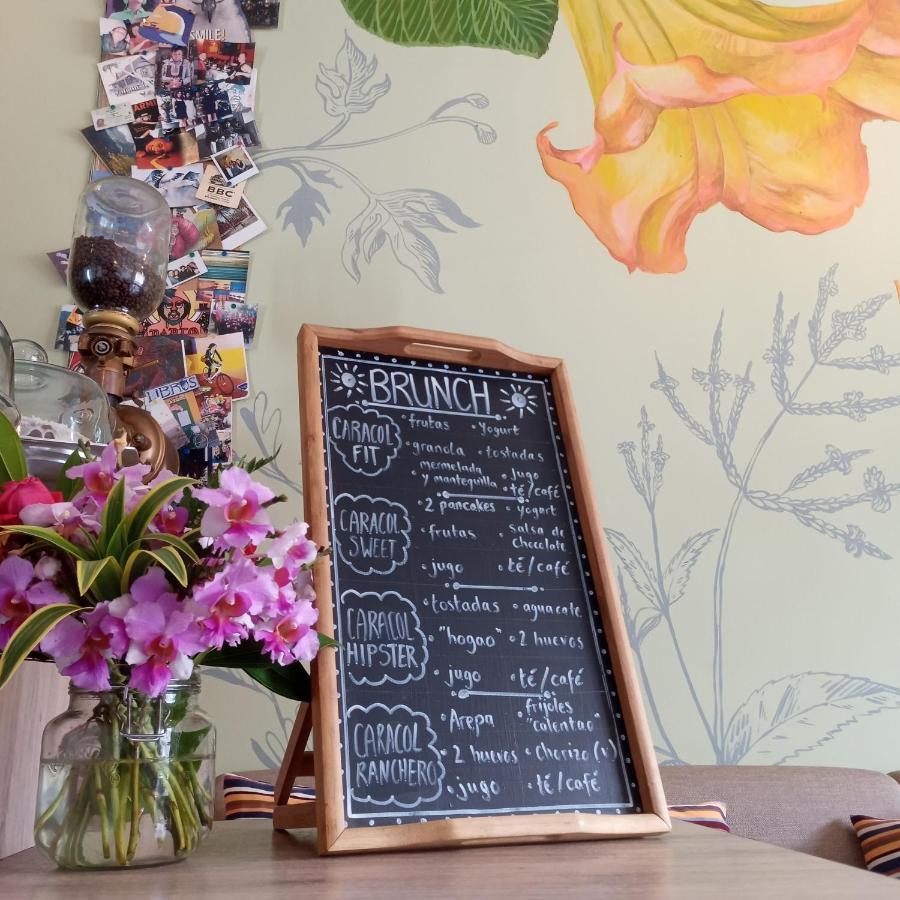 SMILE!
BBC
LIBROS
BRUNCH
CARACOL
FIT
• frutas • Yogurt
• granola • tostadas
mermelada
y mantequilla • jugo
• té/café
CARACOL
SWEET
• 2 pancakes • yogurt
• frutas • salsa de
chocolate
• jugo • té/café
CARACOL
HIPSTER
• tostadas • aguacate
• "hogao" • 2 huevos
• jugo • té/café
CARACOL
RANCHERO
• Arepa • frijoles
"calentao"
• 2 huevos • chorizo (v)
• jugo • té/café